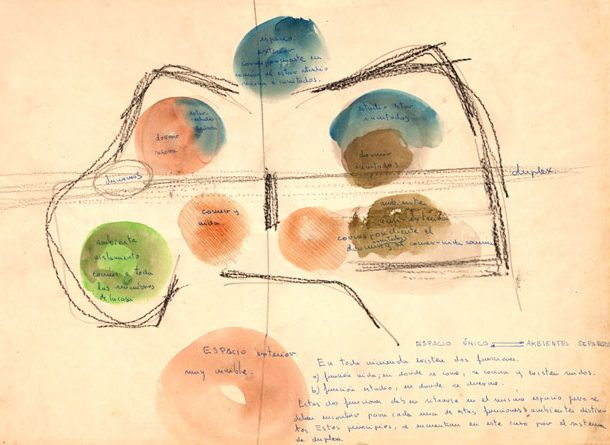 espacio
exterior
correspondiente en
común al estar-estudio
señora e invitados.
estar-
estudio
señora
dormir
señora
estudio estar
invitados
dormir
invitados
duplex
comer y
vida
ambiente
correspondiente el
dormir y al comer-vida común
ambiente
aislamiento
común a todos
los miembros
de la casa
ESPACIO exterior
muy visible.
ESPACIO ÚNICO AMBIENTES SEPARADOS
En toda vivienda existen dos funciones.
a) función vida; en donde se come, se cocina y existen ruidos.
b) función estudio, en donde se duerme.
Estas dos funciones deben situarse en el mismo espacio, pero se
deben encontrar para cada una de estas funciones ambientes distin-
tos. Estos principios, se encuentran en este caso por el sistema
de duplex.